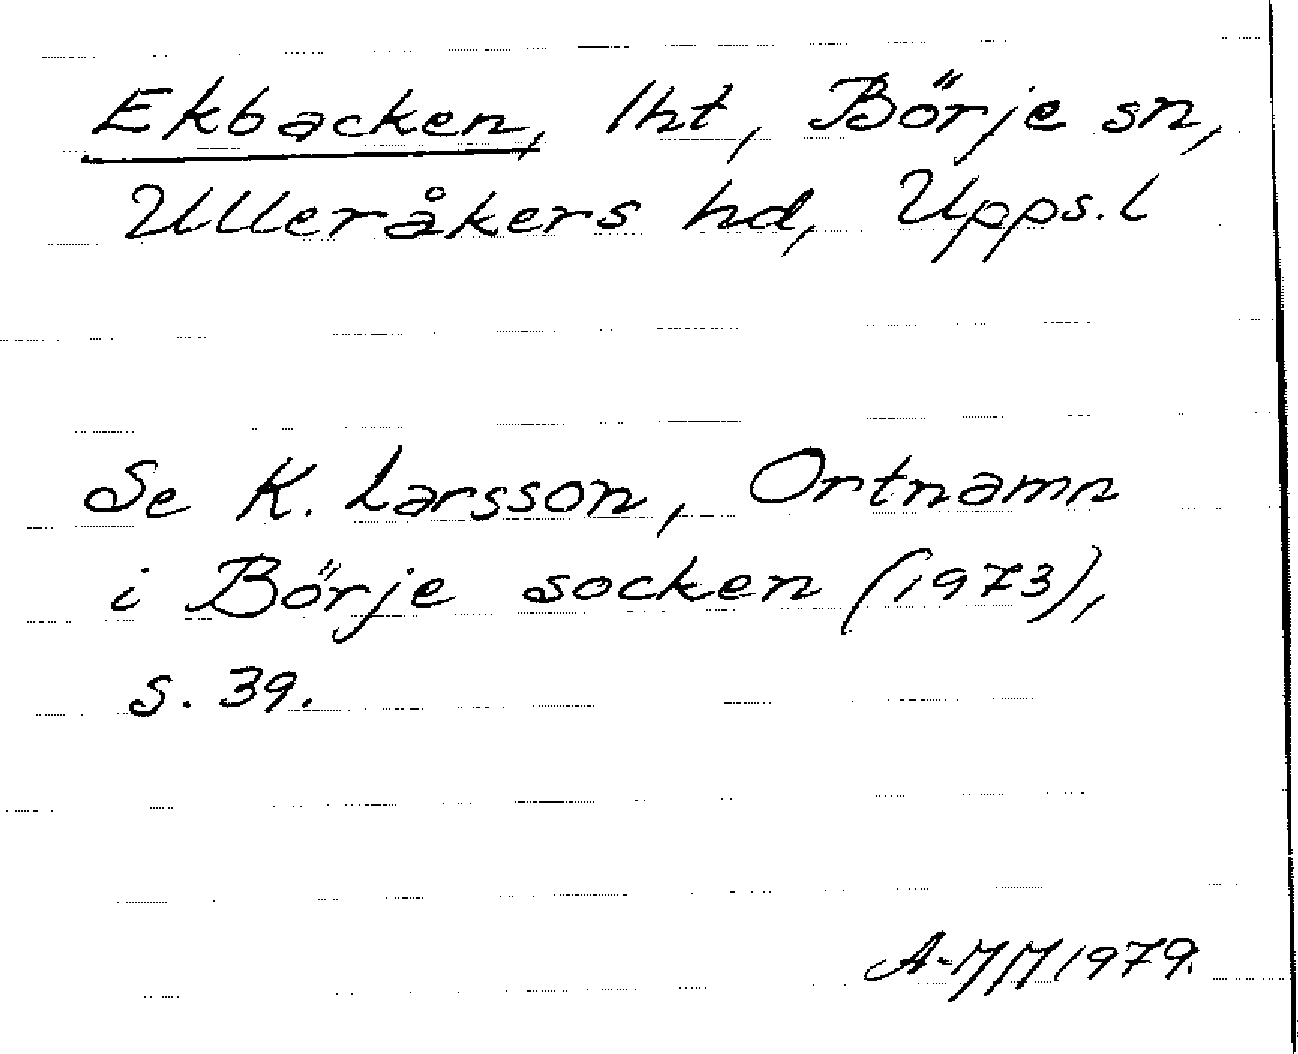 Ekbacken, lht, Börje sn,
Ulleråkers hd, Upps. l
Se K. Larsson, Ortnamn
i Börje socken (1973),
s. 39.
A-MM 1979.